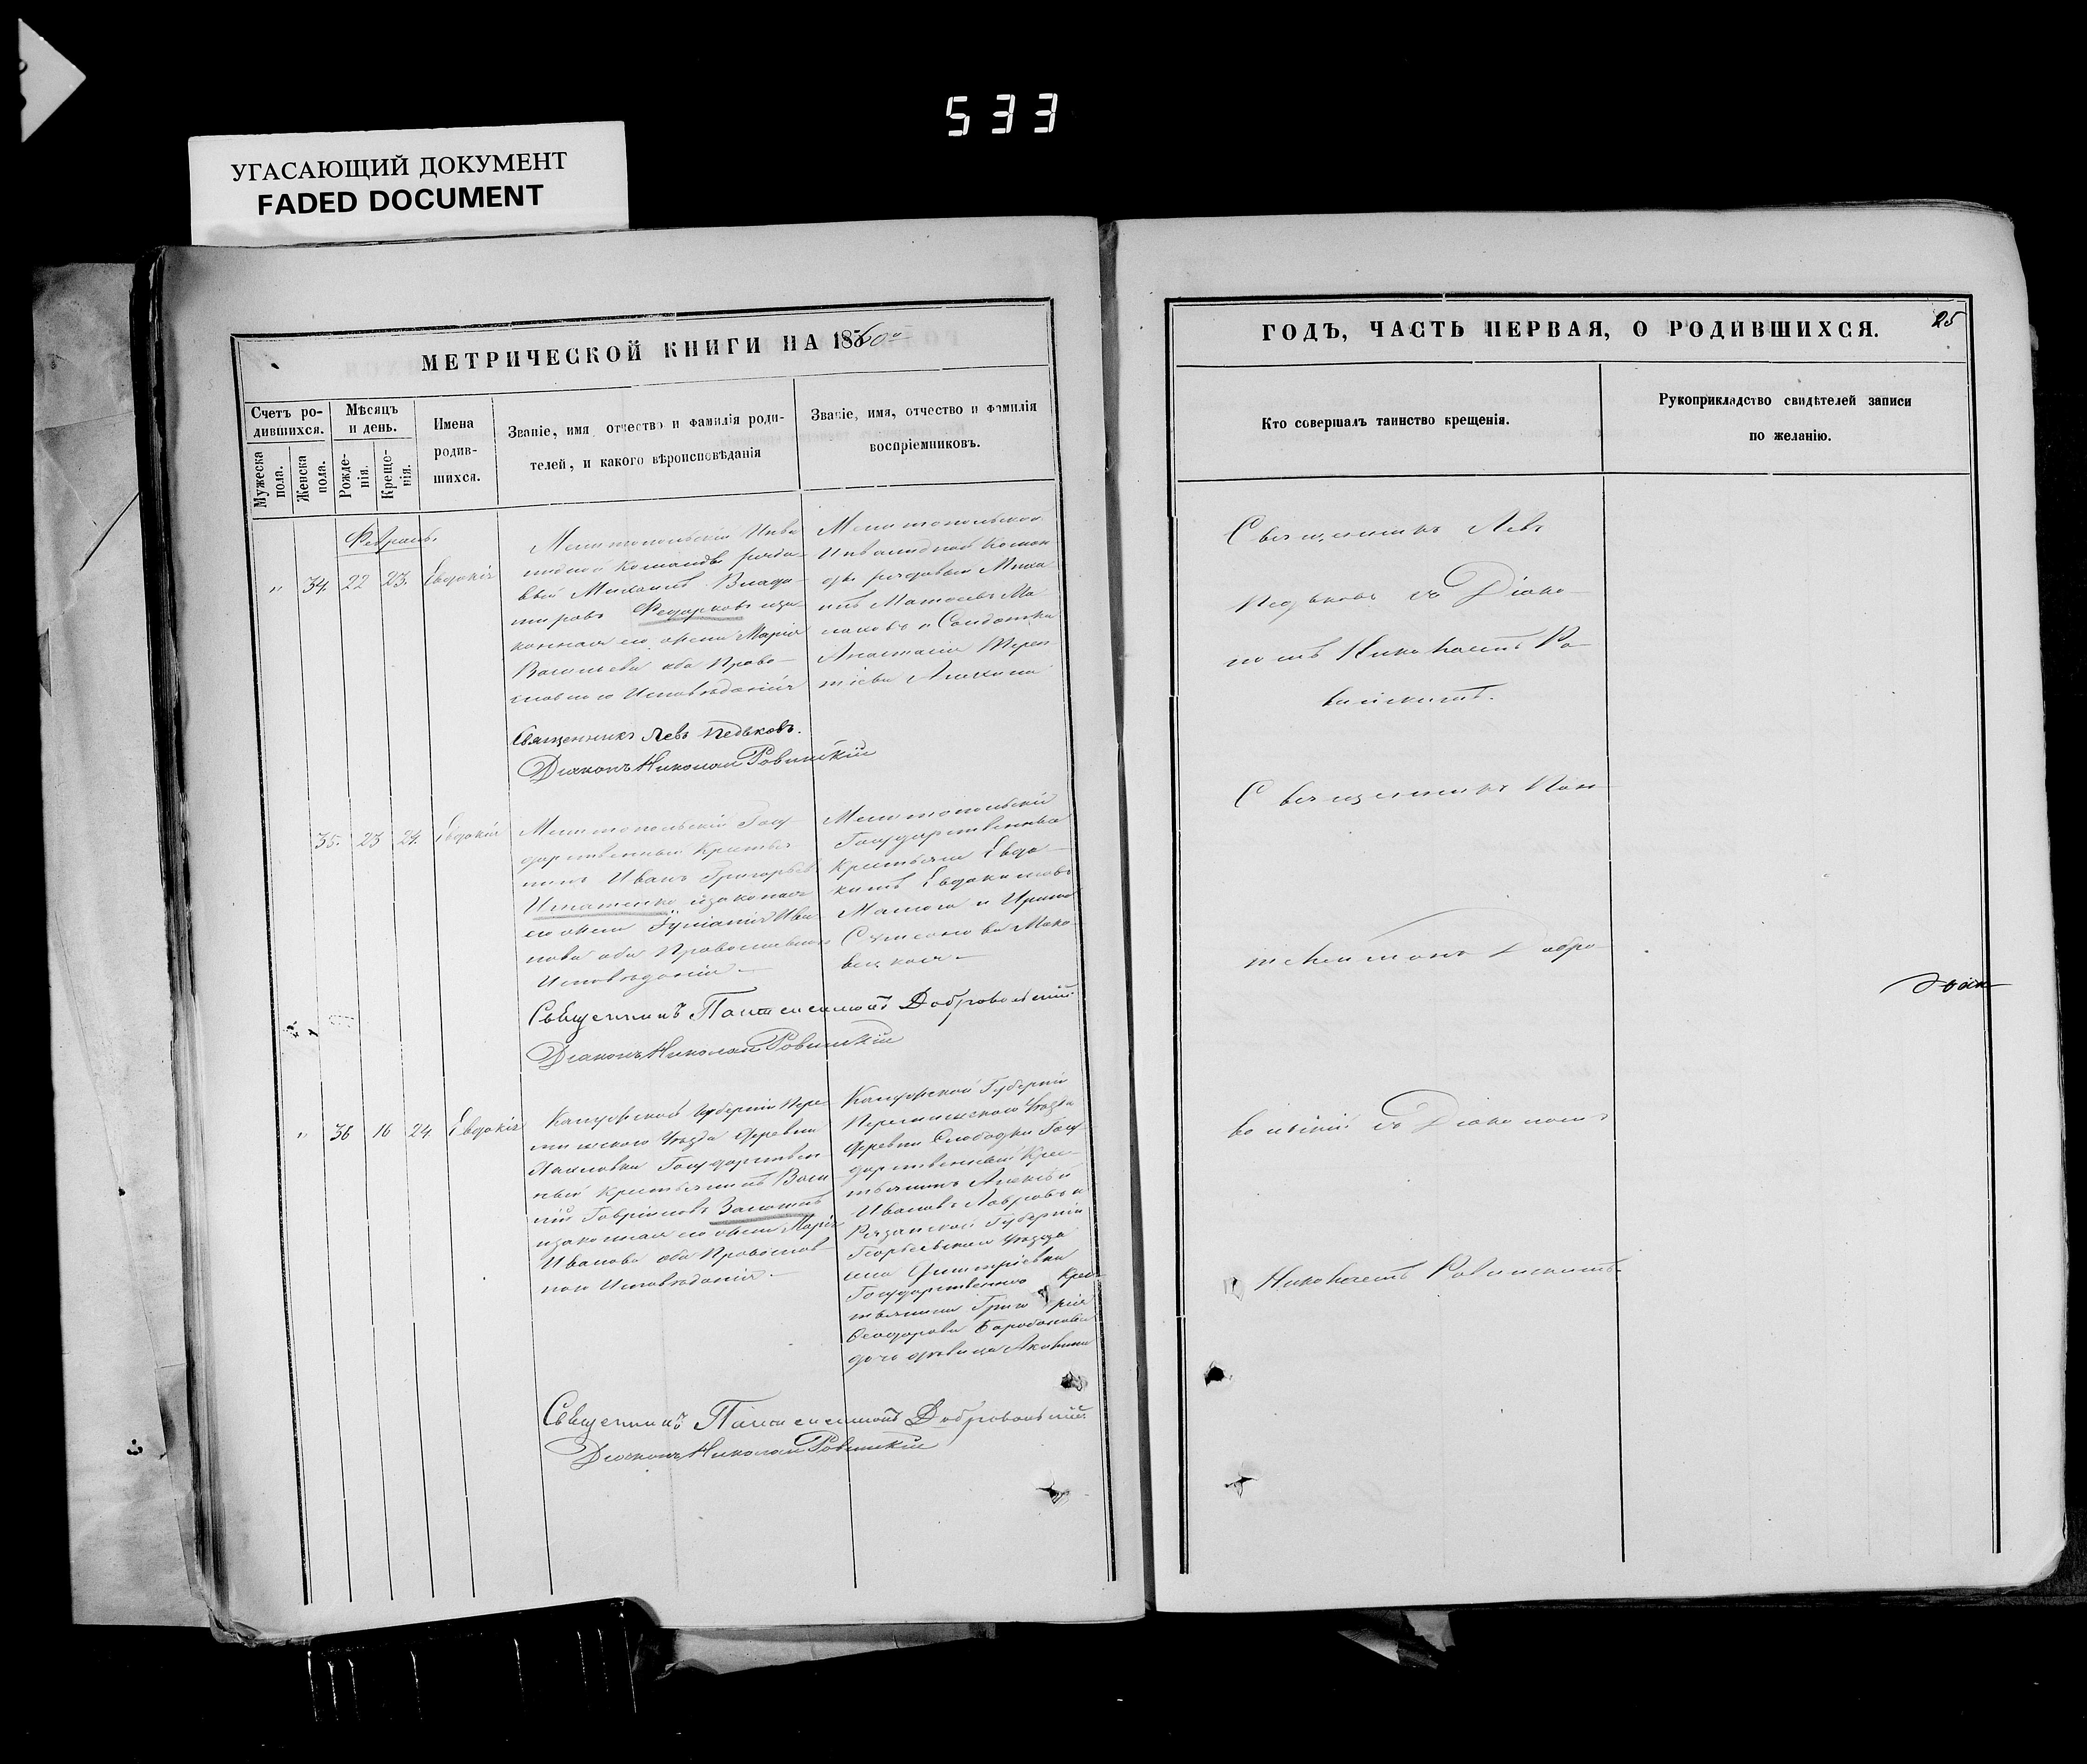 533
УГАСАЮЩИЙ ДОКУМЕНТ
FADED DOCUMENT
МЕТРИЧЕСКОЙ КНИГИ НА 1860й
Счетъ ро-
дившихся.
Мужеска
пола.
Женска
пола.
Мѣсяцъ
и день.
Рожде-
нія.
Креще-
нія.
Имена
родив-
шихся.
Званіе, имя отчество и фамилія роди-
телей, и какого вѣроисповѣданія
Званіе, имя, отчество и фамилія
воспріемниковъ.
Февраль.
„ 34. 22 23. Евдокія
Мелитопольскій Инва
лидной Команды рядо-
вый Михаилъ Влади-
мировъ Федорковъ и за-
конная его жена Марія
Васильева оба Право-
славнаго Исповѣданія
Мелитопольской
Инвалидной Коман
ды рядовый Миха
илъ Матвѣевъ
и Солдатка
Анастасія Терен
тіева
Священникъ Левъ Педьковъ.
Діаконъ Николай Ровинскій
35. 23 24. Евдокія
Мелитопольскій Госу-
дарственный Крестья
нинъ Иванъ Григорьевъ
Игнатенко и законная
его жена Ива
нова оба Православнаго
Исповѣданія
Мелитопольскій
Государственные
Крестьяне Евдо-
кимъ Евдокимовъ
и Ирина
Семенова
Священникъ Пантелеимонъ Добровольскій
Діаконъ Николай Ровинскій
„ 36 16 24. Евдокія
Калужской Губерніи Пере
мышского Уѣзда деревни
Государствен
ный Крестьянинъ Васи
лій Гавріиловъ
и законная его жена Марія
Иванова оба Православ-
наго Исповѣданія
Калужской Губерніи
Перемышского Уѣзда
деревни Слободки Госу
дарственный Крес-
тьянинъ Алексѣй
Ивановъ Лавровъ и
Рязанской Губерніи
Уѣзда
села Дмитріевки
Государственнаго Крес
тьянина Григорія
Ѳеодорова
дочь дѣвица Акилина
Священникъ Пантелеимонъ Добровольскій
Діаконъ Николай Ровинскій
ГОДЪ, ЧАСТЬ ПЕРВАЯ, О РОДИВШИХСЯ.
25
Кто совершалъ таинство крещенія.
Рукоприкладство свидѣтелей записи
по желанію.
Священникъ Левъ
Педьковъ съ Діако-
номъ Николаемъ Ро-
винскимъ.
Священникъ Пан-
телеимонъ Добро-
вольскій съ Діакономъ
Николаемъ Ровинскимъ.